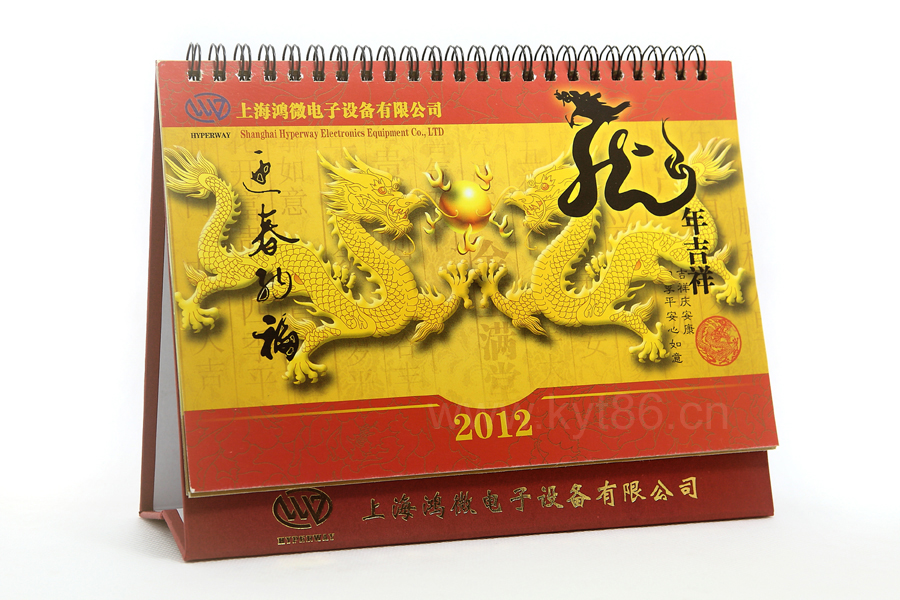 上海鸿微电子设备有限公司
HYPERWAY
Shanghai Hyperway Electronics Equipment Co., LTD
迎春纳福
龙年吉祥
吉祥庆安康
平安心如意
2012
www.kyt86.cn
上海鸿微电子设备有限公司
HYPERWAY